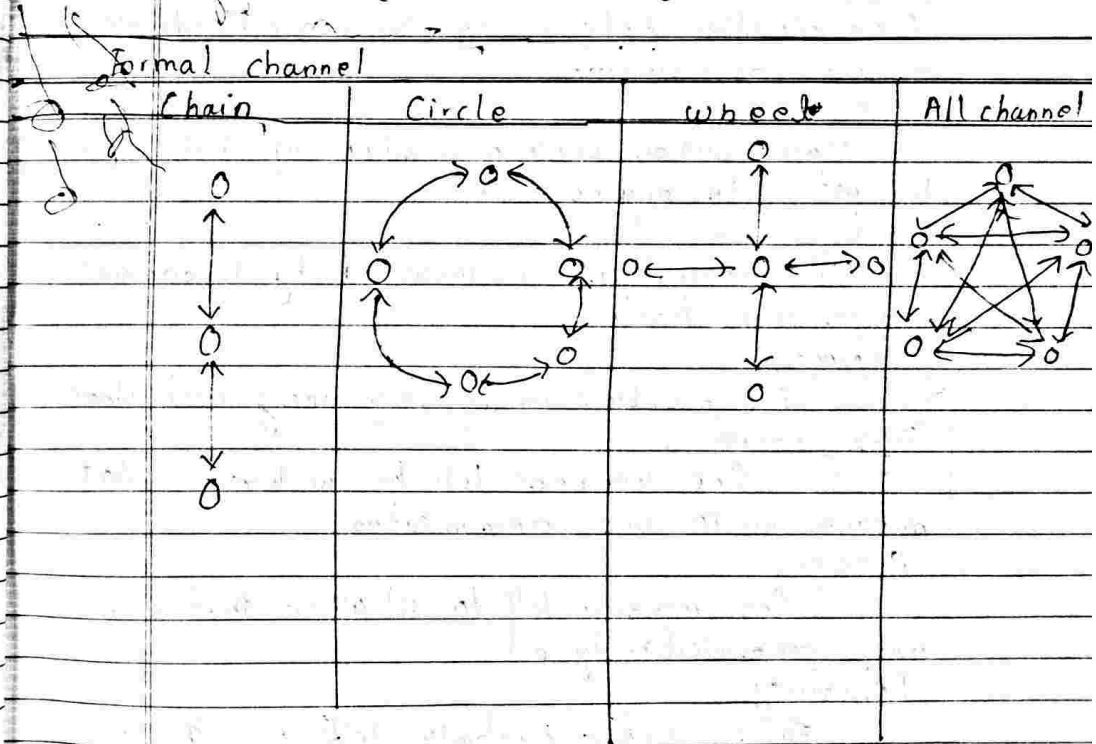 Formal channel
Chain Circle wheel All channel